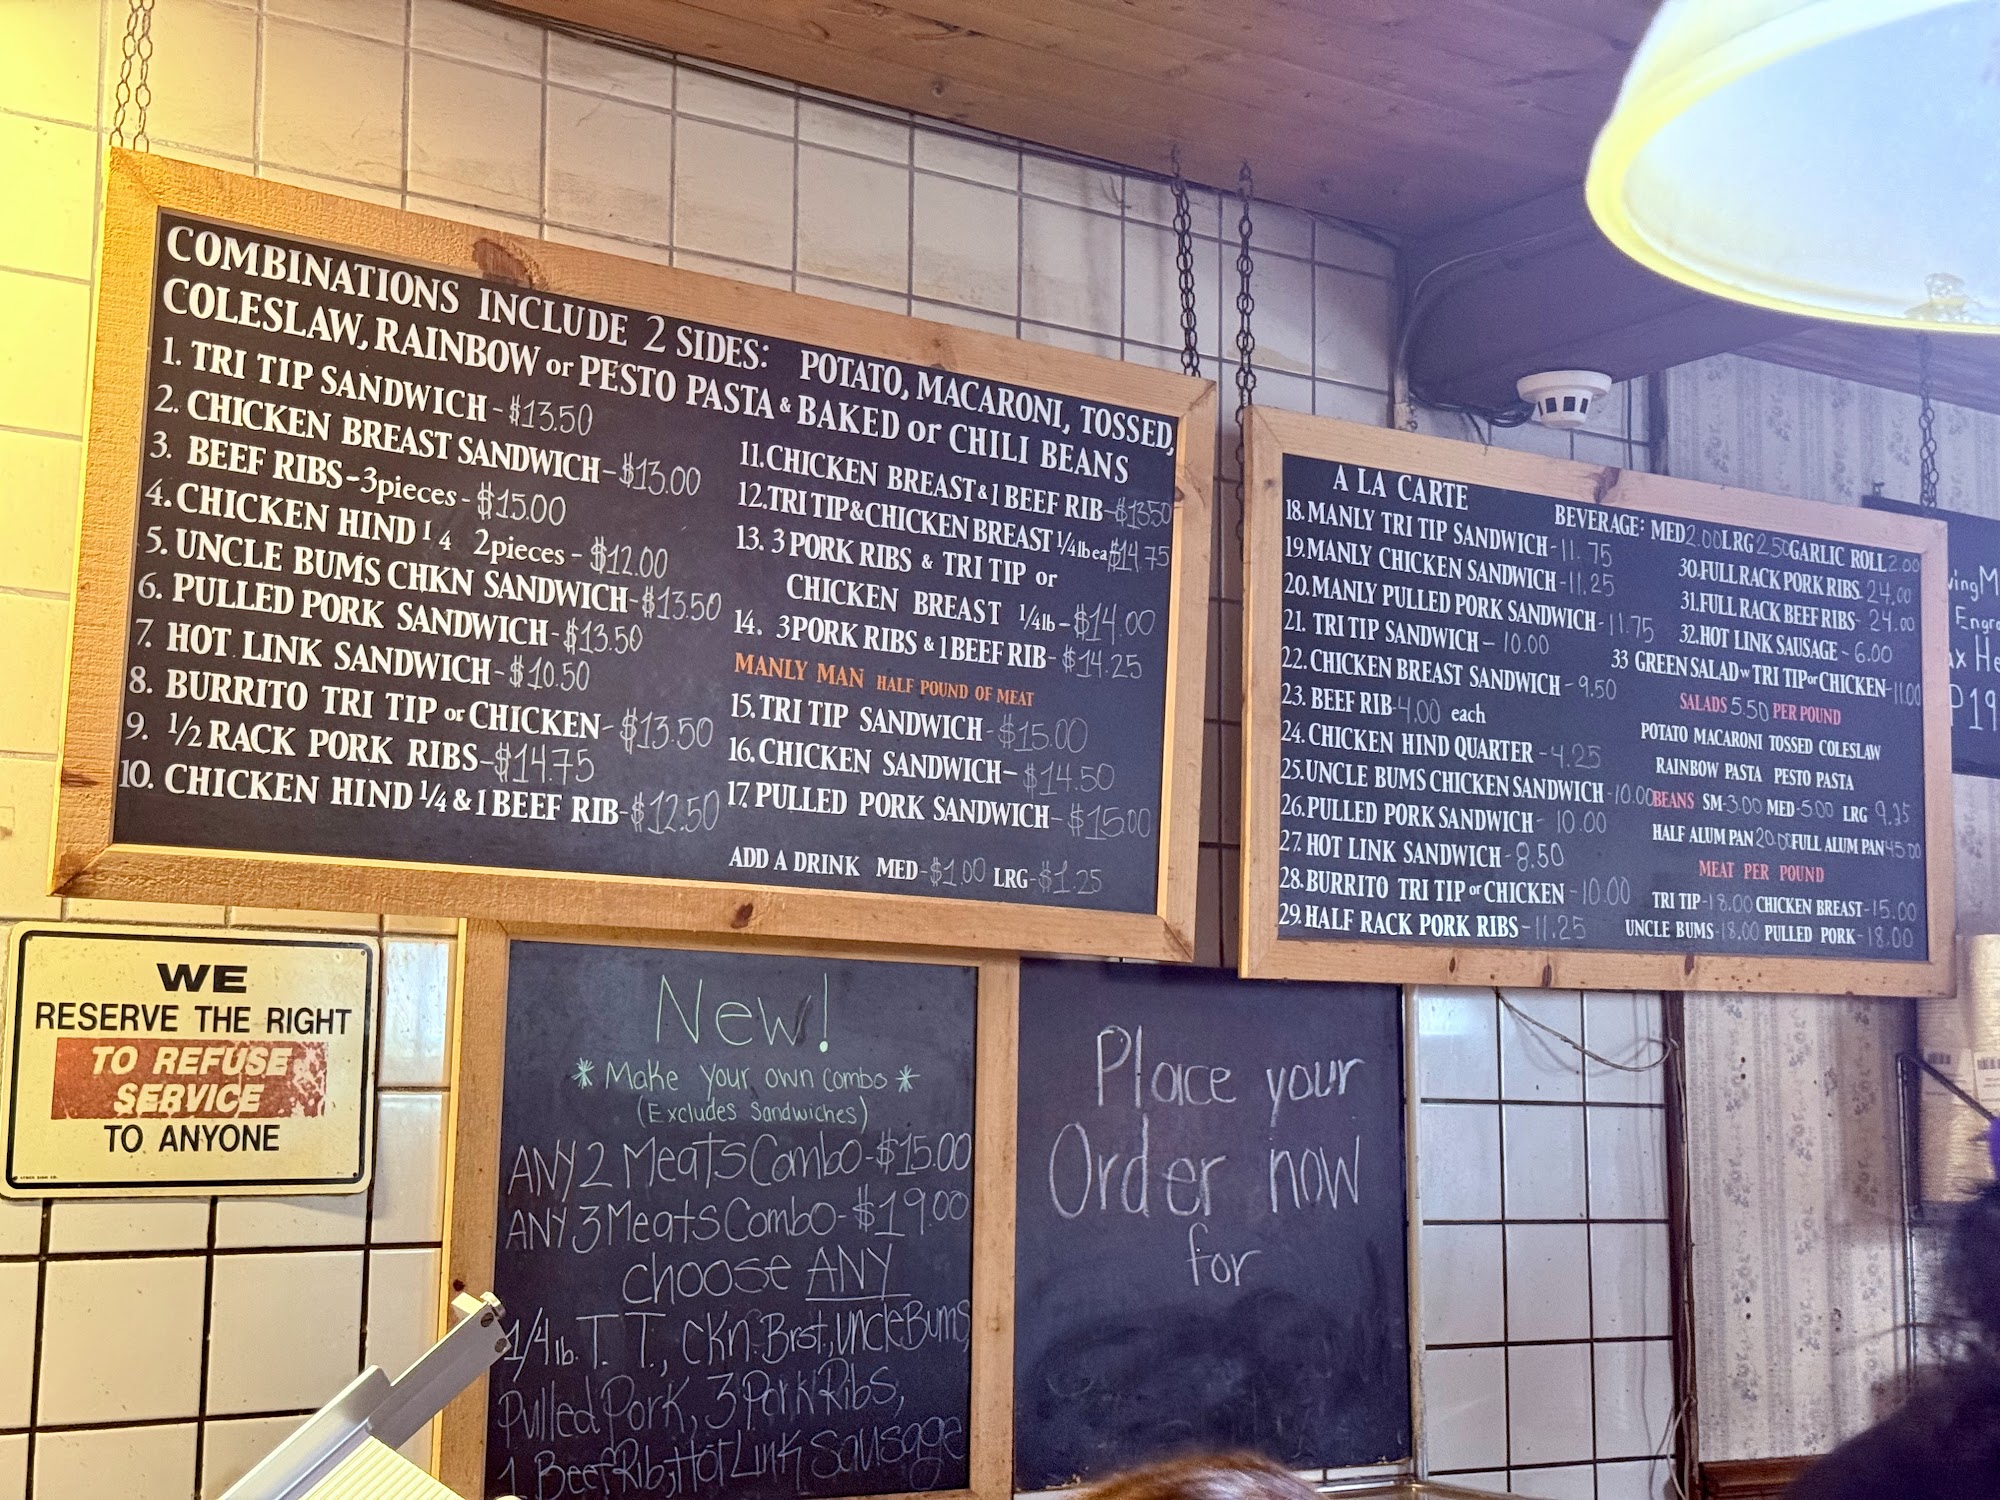 COMBINATIONS INCLUDE 2 SIDES: POTATO, MACARONI, TOSSED,
COLESLAW, RAINBOW or PESTO PASTA & BAKED or CHILI BEANS
1. TRI TIP SANDWICH - $13.50
2. CHICKEN BREAST SANDWICH - $13.00
3. BEEF RIBS - 3pieces - $15.00
4. CHICKEN HIND 1 4 2pieces - $12.00
5. UNCLE BUMS CHKN SANDWICH - $13.50
6. PULLED PORK SANDWICH - $13.50
7. HOT LINK SANDWICH - $10.50
8. BURRITO TRI TIP or CHICKEN - $13.50
9. ½ RACK PORK RIBS - $14.75
10. CHICKEN HIND ¼ & 1 BEEF RIB - $12.50
11. CHICKEN BREAST & 1 BEEF RIB - $13.50
12. TRI TIP & CHICKEN BREAST ¼ lb ea $14.75
13. 3 PORK RIBS & TRI TIP or
CHICKEN BREAST ¼ lb - $14.00
14. 3 PORK RIBS & 1 BEEF RIB - $14.25
MANLY MAN HALF POUND OF MEAT
15. TRI TIP SANDWICH - $15.00
16. CHICKEN SANDWICH - $14.50
17. PULLED PORK SANDWICH - $15.00
ADD A DRINK MED - $1.00 LRG - $1.25
A LA CARTE
18. MANLY TRI TIP SANDWICH - 11.75
19. MANLY CHICKEN SANDWICH - 11.25
20. MANLY PULLED PORK SANDWICH - 11.75
21. TRI TIP SANDWICH - 10.00
22. CHICKEN BREAST SANDWICH - 9.50
23. BEEF RIB - 4.00 each
24. CHICKEN HIND QUARTER - 4.25
25. UNCLE BUMS CHICKEN SANDWICH - 10.00
26. PULLED PORK SANDWICH - 10.00
27. HOT LINK SANDWICH - 8.50
28. BURRITO TRI TIP or CHICKEN - 10.00
29. HALF RACK PORK RIBS - 11.25
BEVERAGE: MED 2.00 LRG 2.50 GARLIC ROLL 2.00
30. FULL RACK PORK RIBS. 24.00
31. FULL RACK BEEF RIBS - 24.00
32. HOT LINK SAUSAGE - 6.00
33 GREEN SALAD w TRI TIP or CHICKEN - 11.00
SALADS 5.50 PER POUND
POTATO MACARONI TOSSED COLESLAW
RAINBOW PASTA PESTO PASTA
BEANS SM - 3.00 MED - 5.00 LRG 9.25
HALF ALUM PAN 20.00 FULL ALUM PAN 45.00
MEAT PER POUND
TRI TIP - 18.00 CHICKEN BREAST - 15.00
UNCLE BUMS - 18.00 PULLED PORK - 18.00
WE
RESERVE THE RIGHT
TO REFUSE
SERVICE
TO ANYONE
New!
* Make your own combo *
(Excludes Sandwiches)
ANY 2 Meats Combo - $15.00
ANY 3 Meats Combo - $19.00
choose ANY
1/4 lb. T.T., CKn. Brst, Uncle Bums,
Pulled Pork, 3 Pork Ribs,
1 Beef Rib, Hot Link Sausage
Place your
Order now
for